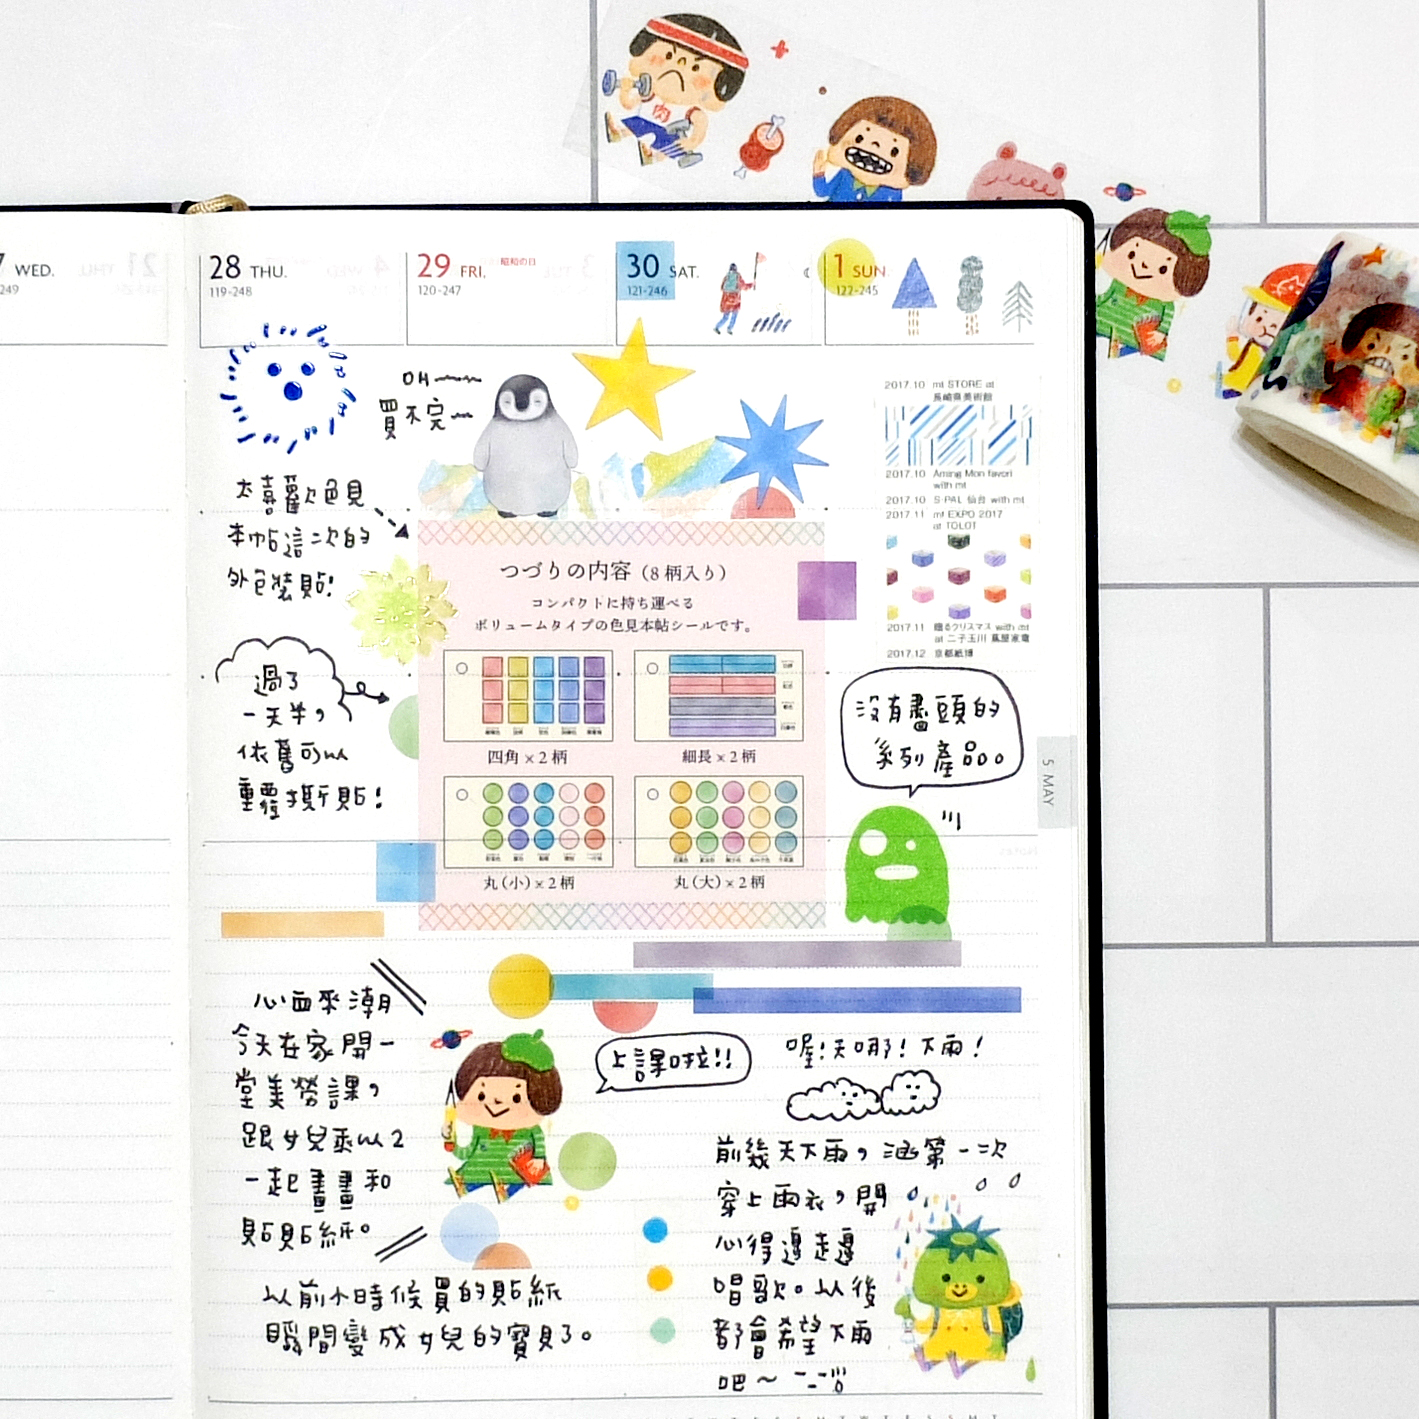 WED.
249
28 THU.
119-248
29 FRI. 昭和の日
120-247
30 SAT.
121-246
1 SUN.
122-245
肉
OH
買不完
太喜歡色見
本帖這二次的
外包裝貼!
過了
一天半,
依舊可以
重複撕貼!
2017.10 mt STORE at
長崎県美術館
2017.10 Aming Mon favori
with mt
2017.10 S-PAL 仙台 with mt
2017.11 mt EXPO 2017
at TOLOT
2017.11 贈るクリスマス with mt
at 二子玉川 蔦屋家電
2017.12 京都紙博
つづりの内容(8柄入り)
コンパクトに持ち運べる
ボリュームタイプの色見本帖シールです。
四角×2柄
細長×2柄
丸(小)×2柄
丸(大)×2柄
沒有盡頭的
系列產品。。
5 MAY
心血來潮
今天在家開一
堂美勞課,
跟女兒乘以2
一起畫畫和
貼貼紙。
上課啦!!
以前小時候買的貼紙
瞬間變成女兒的寶貝了。
喔!天哪!下雨!
前幾天下雨,涵第一次
穿上雨衣,開
心得邊走邊
唱歌。以後
都會希望下雨
吧~